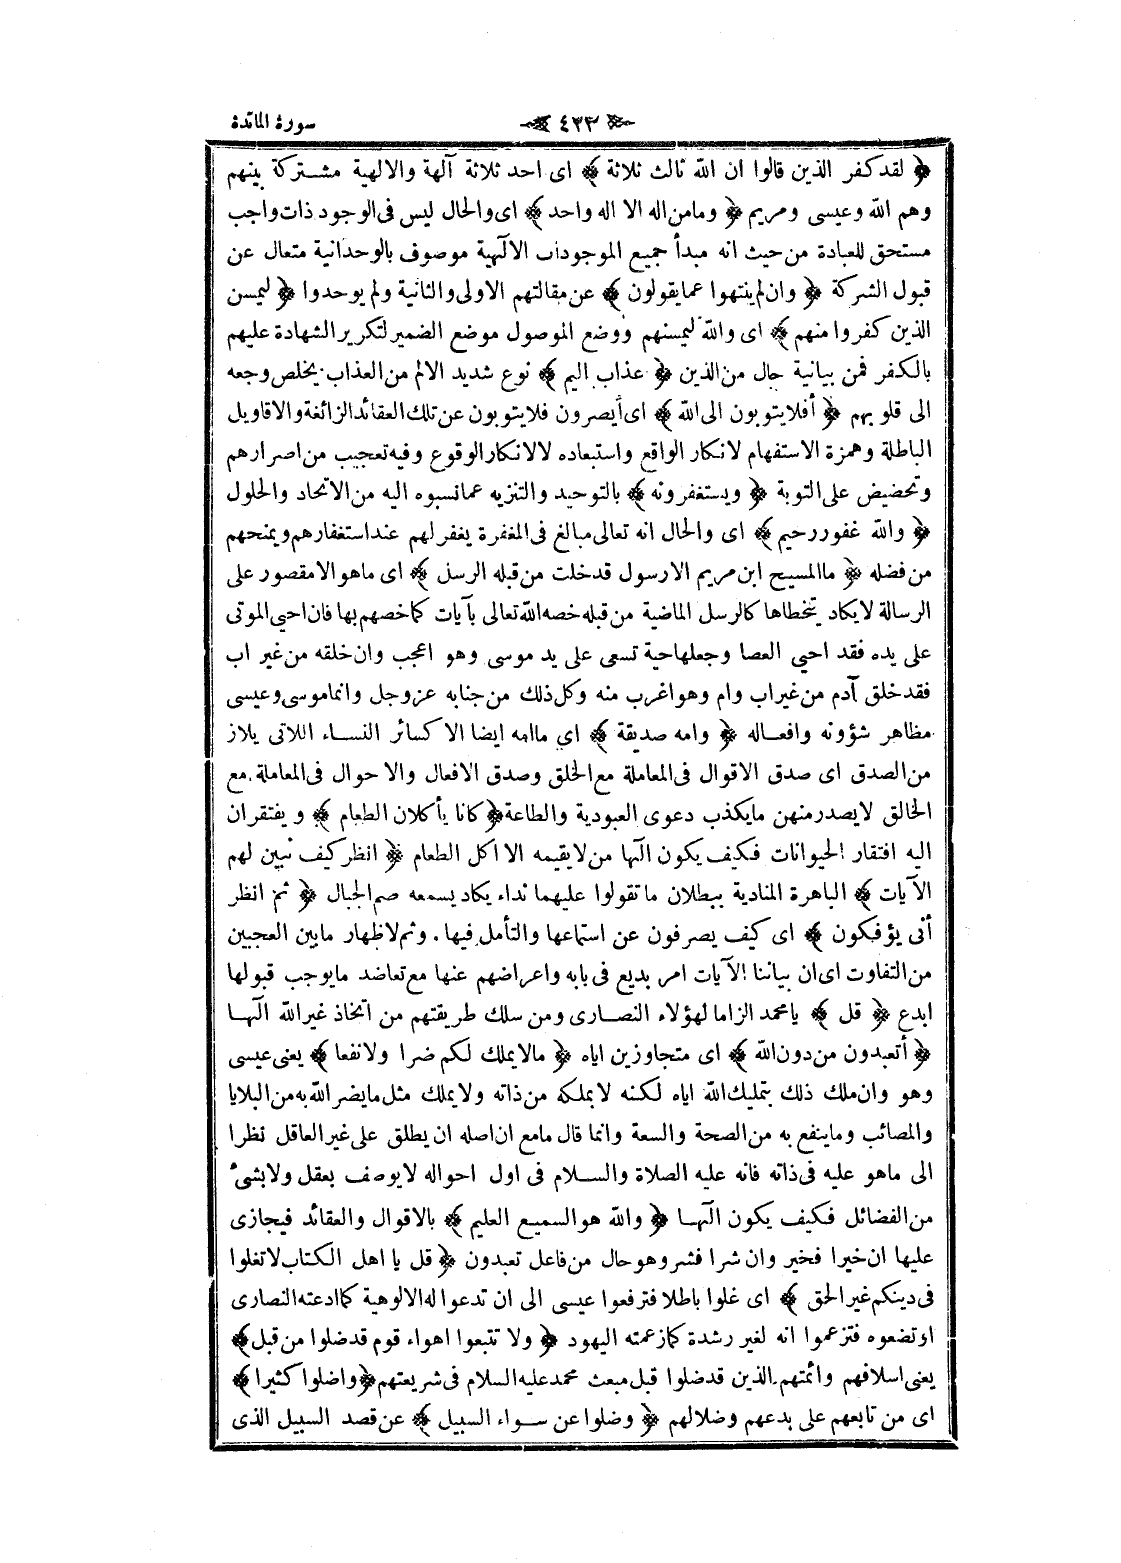 سورة المائدة ٤٢٣
﴿ لقد كفر الذين قالوا ان الله ثالث ثلاثة ﴾ اى احد ثلاثة آلهة والالهية مشتركة بينهم
وهم الله وعيسى ومريم ﴿ وما من اله الا اله واحد ﴾ اى والحال ليس فى الوجود ذات واجب
مستحق للعبادة من حيث انه مبدأ جميع الموجودات الا آلهية موصوف بالوحدانية متعال عن
قبول الشركة ﴿ وان لم ينتهوا عما يقولون ﴾ عن مقالتهم الاولى والثانية ولم يوحدوا ﴿ ليمسن
الذين كفروا منهم ﴾ اى والله ليمسنهم ووضع الموصول موضع الضمير لتكرير الشهادة عليهم
بالكفر فمن بيانية حال من الذين ﴿ عذاب اليم ﴾ نوع شديد الالم من العذاب يخلص وجعه
الى قلوبهم ﴿ أفلا يتوبون الى الله ﴾ اى أيصرون فلا يتوبون عن تلك العقائد الزائغة والاقاويل
الباطلة وهمزة الاستفهام لانكار الواقع واستبعاده لا لانكار الوقوع وفيه تعجيب من اصرارهم
وتحضيض على التوبة ﴿ ويستغفرونه ﴾ بالتوحيد والتنزيه عما نسبوه اليه من الاتحاد والحلول
﴿ والله غفور رحيم ﴾ اى والحال انه تعالى مبالغ فى المغفرة يغفر لهم عند استغفارهم ويمنحهم
من فضله ﴿ ما المسيح ابن مريم الا رسول قد خلت من قبله الرسل ﴾ اى ما هو الا مقصور على
الرسالة لا يكاد يتخطاها كالرسل الماضية من قبله خصه الله تعالى بآيات كما خصهم بها فان احيى الموتى
على يده فقد احيى العصا وجعلها حية تسعى على يد موسى وهو اعجب وان خلقه من غير اب
فقد خلق آدم من غير اب وام وهو اغرب منه وكل ذلك من جنابه عز وجل وانما موسى وعيسى
مظاهر شؤونه وافعاله ﴿ وامه صديقة ﴾ اى ما امه ايضا الا كسائر النساء اللاتى يلاز
من الصدق اى صدق الاقوال فى المعاملة مع الخلق وصدق الافعال والاحوال فى المعاملة مع
الخالق لا يصدر منهن ما يكذب دعوى العبودية والطاعة ﴿ كانا يأكلان الطعام ﴾ ويفتقران
اليه افتقار الحيوانات فكيف يكون الها من لا يقيمه الا اكل الطعام ﴿ انظر كيف نبين لهم
الآيات ﴾ الباهرة المنادية ببطلان ما تقولوا عليهما نداء يكاد يسمعه صم الجبال ﴿ ثم انظر
أنى يؤفكون ﴾ اى كيف يصرفون عن استماعها والتأمل فيها . وثم لاظهار ما بين العجبين
من التفاوت اى ان بياننا الآيات امر بديع فى بابه واعراضهم عنها مع تعاضد ما يوجب قبولها
ابدع ﴿ قل ﴾ يا محمد الزاما لهؤلاء النصارى ومن سلك طريقتهم من اتخاذ غير الله الها
﴿ أتعبدون من دون الله ﴾ اى متجاوزين اياه ﴿ ما لا يملك لكم ضرا ولا نفعا ﴾ يعنى عيسى
وهو وان ملك ذلك بتمليك الله اياه لكنه لا يملكه من ذاته ولا يملك مثل ما يضر الله به من البلايا
والمصائب وما ينفع به من الصحة والسعة وانما قال ما مع ان اصله ان يطلق على غير العاقل نظرا
الى ما هو عليه فى ذاته فانه عليه الصلاة والسلام فى اول احواله لا يوصف بعقل ولا بشىء
من الفضائل فكيف يكون الها ﴿ والله هو السميع العليم ﴾ بالاقوال والعقائد فيجازى
عليها ان خيرا فخير وان شرا فشر وهو حال من فاعل تعبدون ﴿ قل يا اهل الكتاب لا تغلوا
فى دينكم غير الحق ﴾ اى غلوا باطلا فترفعوا عيسى الى ان تدعوا له الالوهية كما ادعته النصارى
او تضعوه فتزعموا انه لغير رشدة كما زعمته اليهود ﴿ ولا تتبعوا اهواء قوم قد ضلوا من قبل ﴾
يعنى اسلافهم وائمتهم الذين قد ضلوا قبل مبعث محمد عليه السلام فى شريعتهم ﴿ واضلوا كثيرا ﴾
اى من تابعهم على بدعهم وضلالهم ﴿ وضلوا عن سواء السبيل ﴾ عن قصد السبيل الذى